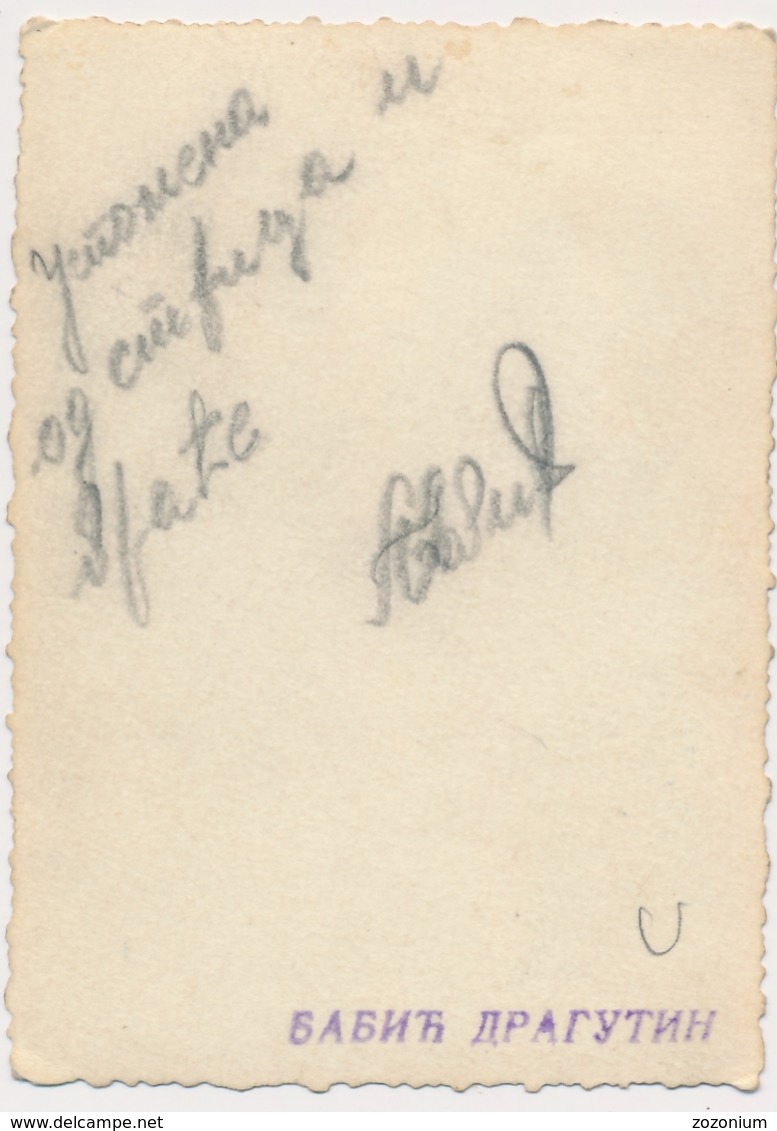 Успомена
од стрица и
браће
Бабић
U
БАБИЋ ДРАГУТИН
www.delcampe.net
zozonium